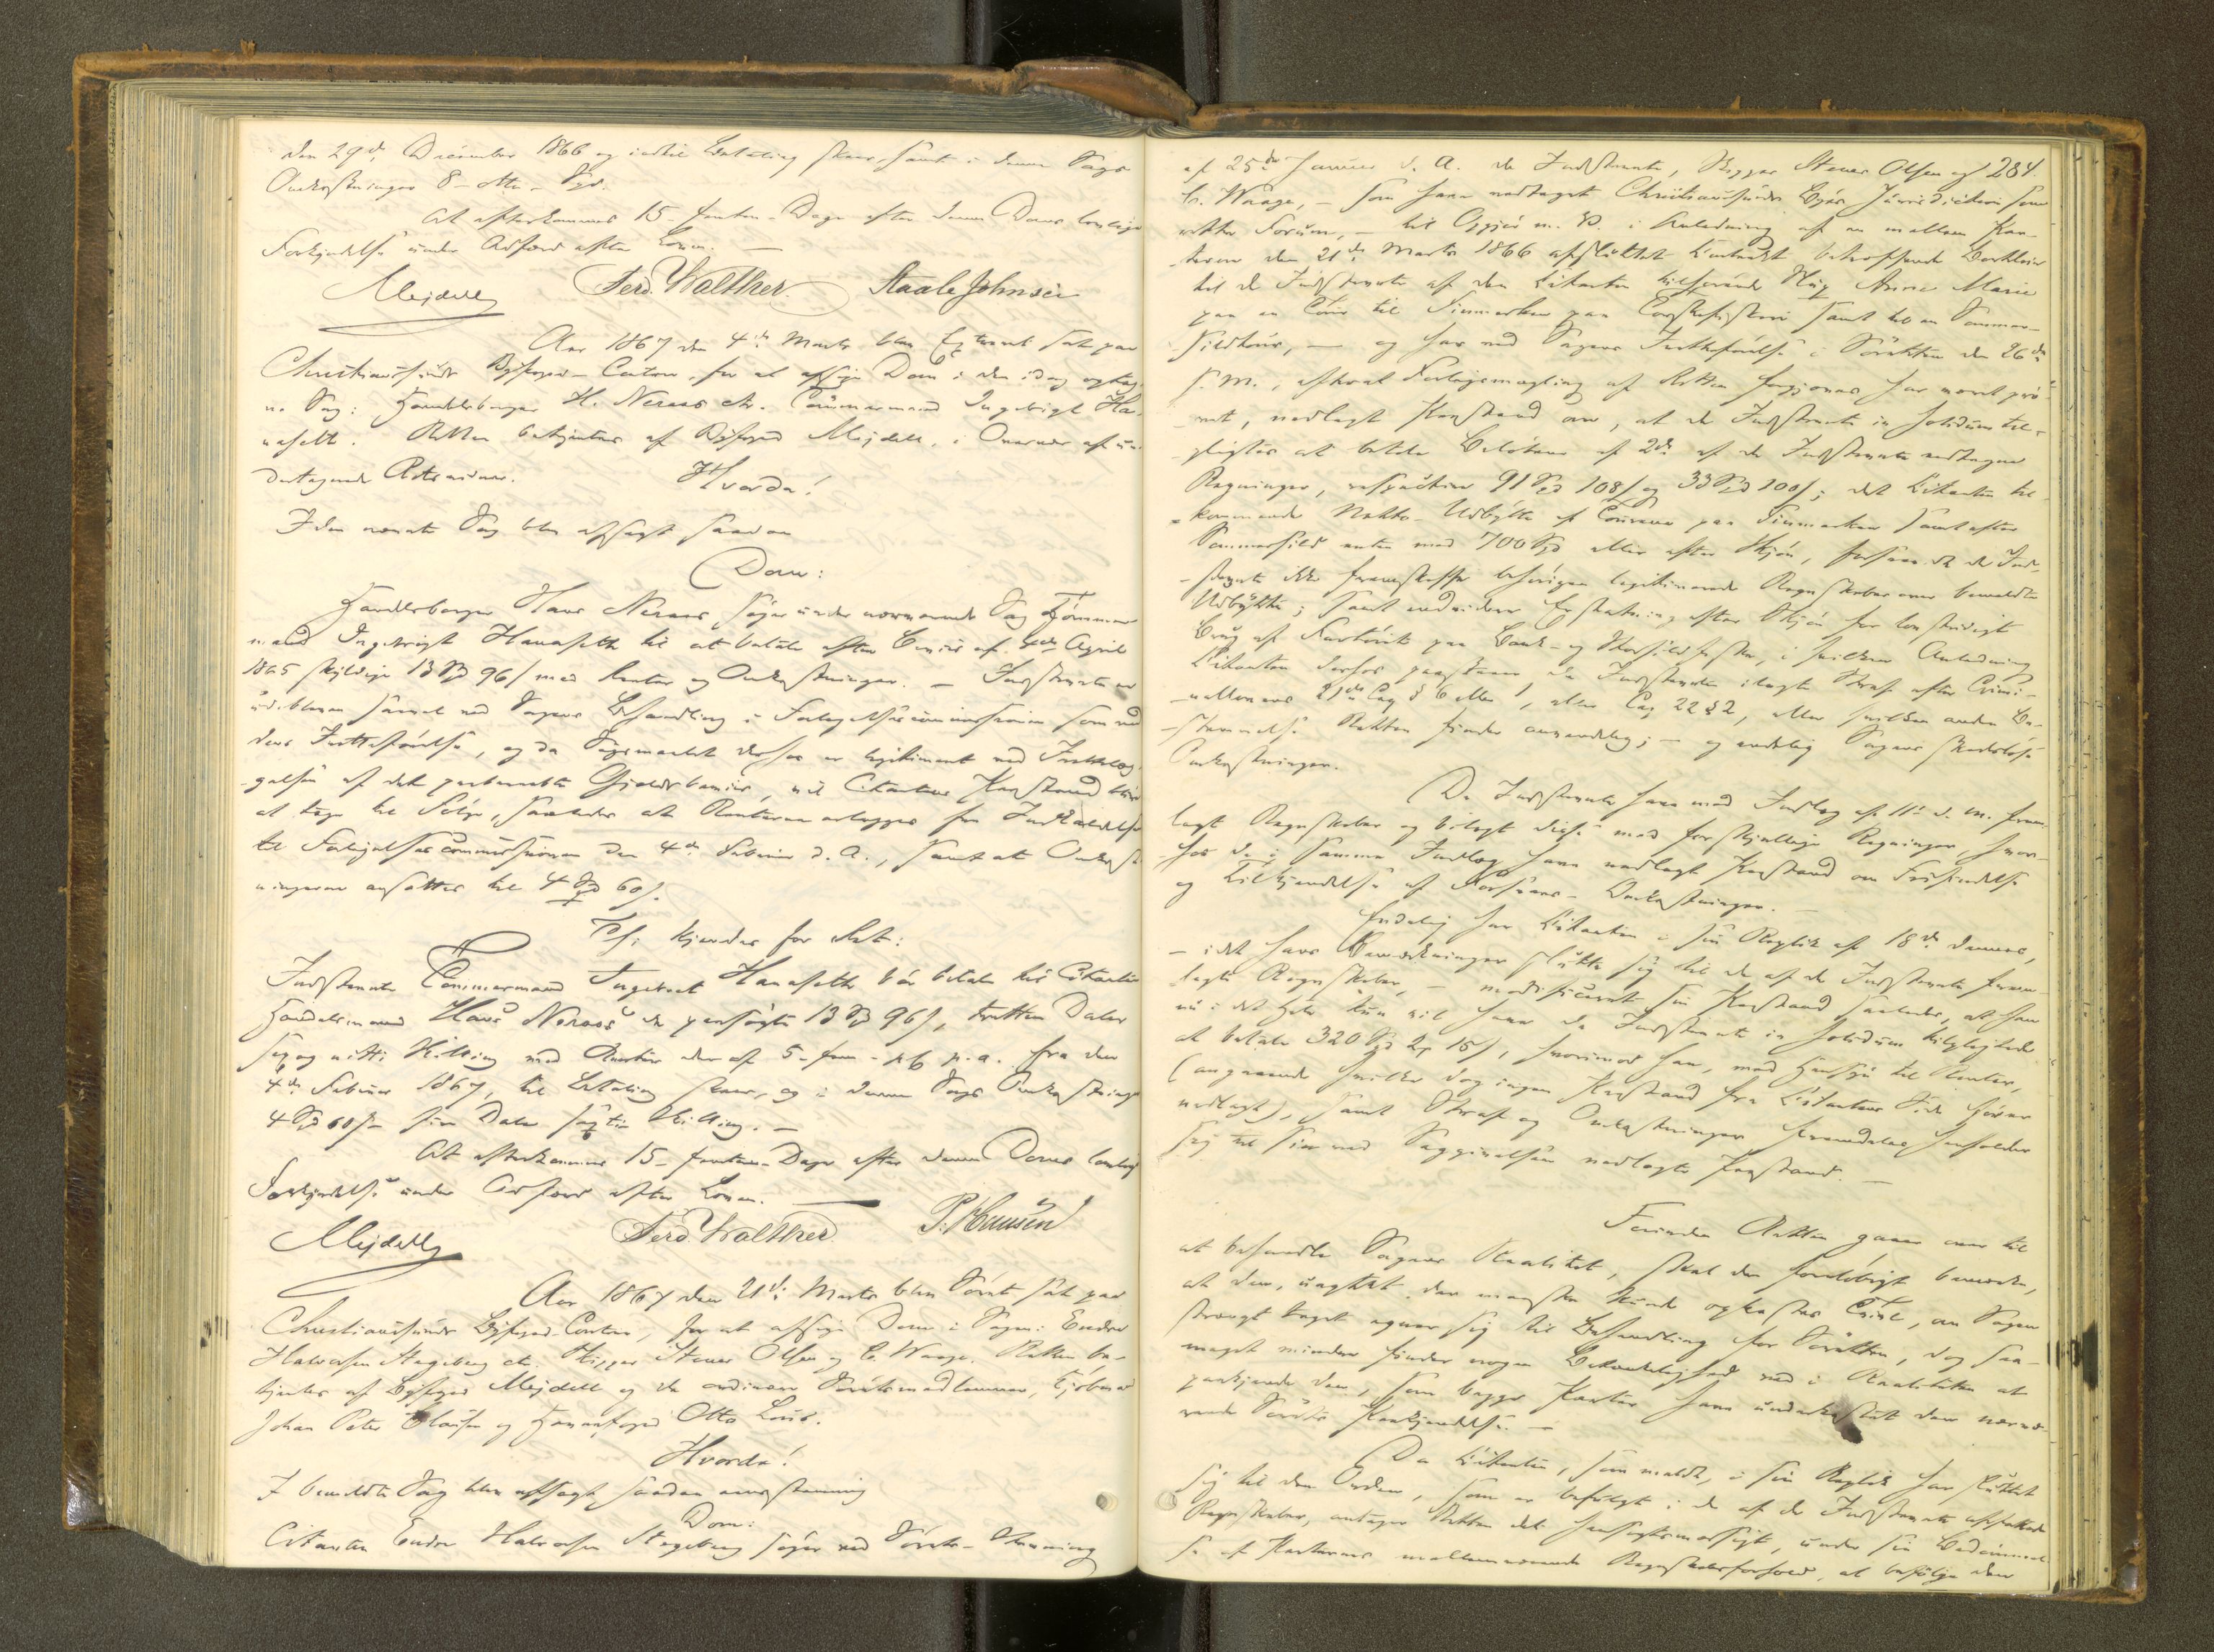 den 29de December 1866 og indtil Betaling skeer, samt i denne Sags
Omkostninger 8 - otte - Spd.
At efterkommes 15 - femten - Dage efter denne Doms lovlige
Forkyndelse under Adfærd efter Loven. —
Mejdell Ferd. Walther Staale Johnsen
Aar 1867 den 4de Marts blev Extraret sat paa
Christianssunds Byfoged-Contor, for at afsige Dom i den idag optag-
ne Sag: Handelsborger H. Neraas ctr. Tømmermand Ingebrigt Ha-
naseth. Retten betjentes af Byfoged Mejdell, i Overvær af un-
dertegnede Retsvidner.
Hvorda!
I den nævnte Sag blev afsagt saadan
Dom:
Handelsborger Hans Neraas søger under nærværende Sag Tømmer-
mand Ingebrigt Hanaseth til at betale efter Beviis af 4de April
1865 skyldige 13 Spd 96 s med Renter og Omkostninger. — Indstevnte er
udebleven saavel ved Sagens Behandling i Forligelsescommissionen som ved
dens Incaminering, og da Søgsmaalet derhos er legitimeret ved Fremlæg-
gelsen af det paaberaabte Gjældsbeviis, vil Citantens Paastand blive
at tage til Følge, saaledes at Renterne erlægges fra Indkaldelse
til Forligelsescommissionen den 4de Februar d. A., samt at Omkost-
ningerne ansættes til 4 Spd 60 s.
Thi kjendes for Ret:
Indstevnte Tømmermand Ingebrigt Hanaseth bør betale til Citanten
Handelsmand Hans Neraas de paasøgte 13 Spd 96 s, tretten Daler
sex og nitti Skilling med Renter deraf 5 - fem - pC p. a. fra den
4de Februar 1867, til Betaling skeer, og i denne Sags Omkostninger
4 Spd 60 s - fire Daler sexti Skilling. —
At efterkommes 15 - femten - Dage efter denne Doms lovlige
Forkyndelse under Adfærd efter Loven. —
Mejdell Ferd. Walther P. Hansen
Aar 1867 den 21de Marts blev Søret sat paa
Christianssunds Byfoged-Contor, for at afsige Dom i Sagen: Endre
Halvorsen Stageberg ctr. Skipper Stener Olsen og C. Waage. Retten be-
tjentes af Byfoged Mejdell og de ordinære Søretsmedlemmer, Kjøbmand
Johan Peter Clausen og Havnefoged Otto Lous.
Hvorda!
I bemeldte Sag blev afsagt saadan eenstemmig
Dom:
Citanten Endre Halvorsen Stageberg søger ved Sørets-Stevning
284.
af 25de Januar d. A. de Indstevnte, Skipper Stener Olsen og
C. Waage, — som have vedtaget Christianssunds Byes Jurisdiction som
rette Forum, — til Opgjør m. V. i Anledning af en mellem Par-
terne den 21de Marts 1866 afsluttet Contract betræffende Bortleie
til de Indstevnte af den Citanten tilhørende Slup Anne Marie
paa en Tour til Finmarken paa Torskefiskeri samt til en Sommer-
sildtour, — og har ved Sagens Incaminering i Søretten den 26de
s. M., efterat Forligsmægling af Retten forgjæves har været prø-
vet, nedlagt Paastand om, at de Indstevnte in solidum til-
pligtes at betale Beløbene af 2de af de Indstevnte vedtagne
Regninger, respective 91 Spd 108 s og 33 Spd 100 s; det Citanten til-
kommende Netto-Udbytte af Touren paa Finmarken samt efter
Sommersild enten med 700 Spd eller efter Skjøn, forsaavidt de Ind-
stevnte ikke fremskaffe behørigen legitimerede Regnskaber over bemeldte
Udbytte; samt endvidere Erstatning efter Skjøn for lovstridigt
Brug af Fartøiet paa Bank- og Storsildfiske, i hvilken Anledning
Citanten derhos paastaar de Indstevnte ilagt Straf efter Crimi-
nallovens 21de Cap § 6 eller 1, eller Cap 22 § 2, eller hvilken anden Be-
stemmelse Retten finder anvendelig; — og endelig Sagens skadesløse
Omkostninger.
De Indstevnte have med Indlæg af 11te d. M. frem-
lagt Regnskaber og bilagt disse med forskjellige Regninger, hvor-
hos de i samme Indlæg have nedlagt Paastand om Frifindelse
og Tilkjendelse af Forsvars-Omkostninger. —
Endelig har Citanten i sin Replik af 18de dennes,
— idet hans Bemærkninger slutte sig til de af de Indstevnte frem-
lagte Regnskaber, — modificeret sin Paastand saaledes, at han
nu i det Hele kun vil have de Indstevnte in solidum tilpligtede
at betale 320 Spd 2 15 s, hvorimod han, med Hensyn til Renter,
(angaaende hvilke dog ingen Paastand fra Citantens Side haver
nedlagt), samt Straf og Omkostninger fremdeles henholder
sig til sin ved Saggivelsen nedlagte Paastand. —
Forinden Retten gaaer over til
at behandle Sagens Realitet, skal den foreløbigt bemærke,
at den, uagtet der maaske kunde opkastes Tvivl, om Sagen
strængt taget egner sig til Behandling for Søretten, dog saa-
meget mindre finder nogen Betænkelighed ved i Realiteten at
paakjende den, som begge Parter have underkastet den nærvæ-
rende Sørets Paakjendelse. —
Da Citanten, som meldt, i sin Replik har sluttet
sig til den Orden, som er befulgt i de af de Indstevnte affattede
Regnskaber, antager Retten det hensigtsmæssigst, under sin Bedømmel-
se af Parternes mellemværende Regnskabsforhold, at befølge den